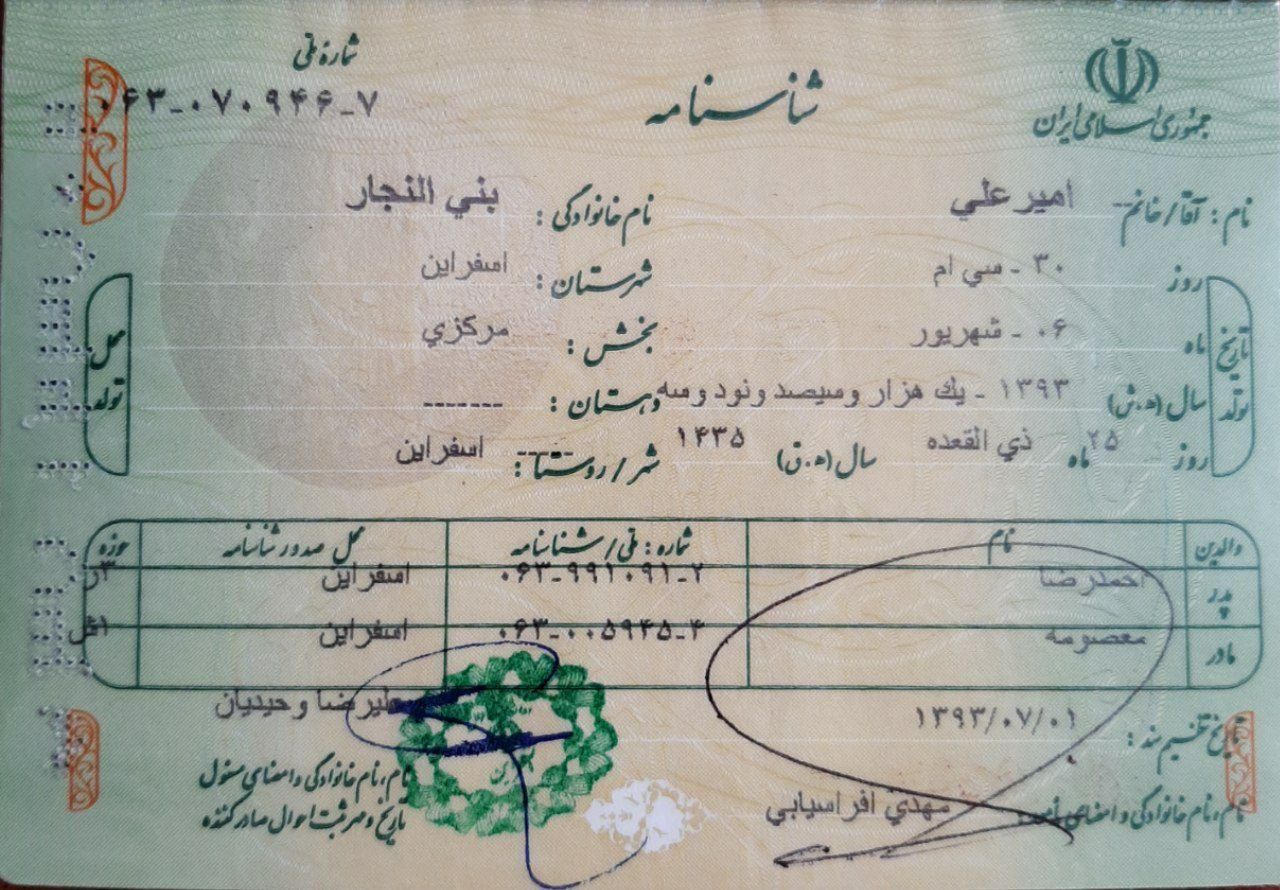 جمهوری اسلامی ایران
شناسنامه
شماره ملی
۰۶۳-۰۷۰۹۴۶-۷
نام : آقا/خانم امیر علي نام خانوادگی : بني النجار
تاریخ تولد
روز ۳۰ - سي ام
ماه ۰۶ - شهریور
سال (ه.ش) ۱۳۹۳ - یك هزار وسیصد ونود وسه
روز ۲۵ ماه ذي القعده سال (ه.ق) ۱۴۳۵
محل تولد
شهرستان : اسفراین
بخش : مرکزي
دهستان : -------
شهر/روستا : اسفراین
والدین نام شماره : ملی/شناسنامه محل صدور شناسنامه حوزه
پدر احمدرضا ۰۶۳-۹۹۱۰۹۱-۲ اسفراین ۳ر
مادر معصومه ۰۶۳-۰۰۵۹۴۵-۴ اسفراین
تاریخ تنظیم سند : ۱۳۹۳/۰۷/۰۱
نام، نام خانوادگی و امضای مهدي افراسیابي
علیرضا وحیدیان
نام، نام خانوادگی و امضای مسئول
تاریخ و مهر ثبت احوال صادر کننده